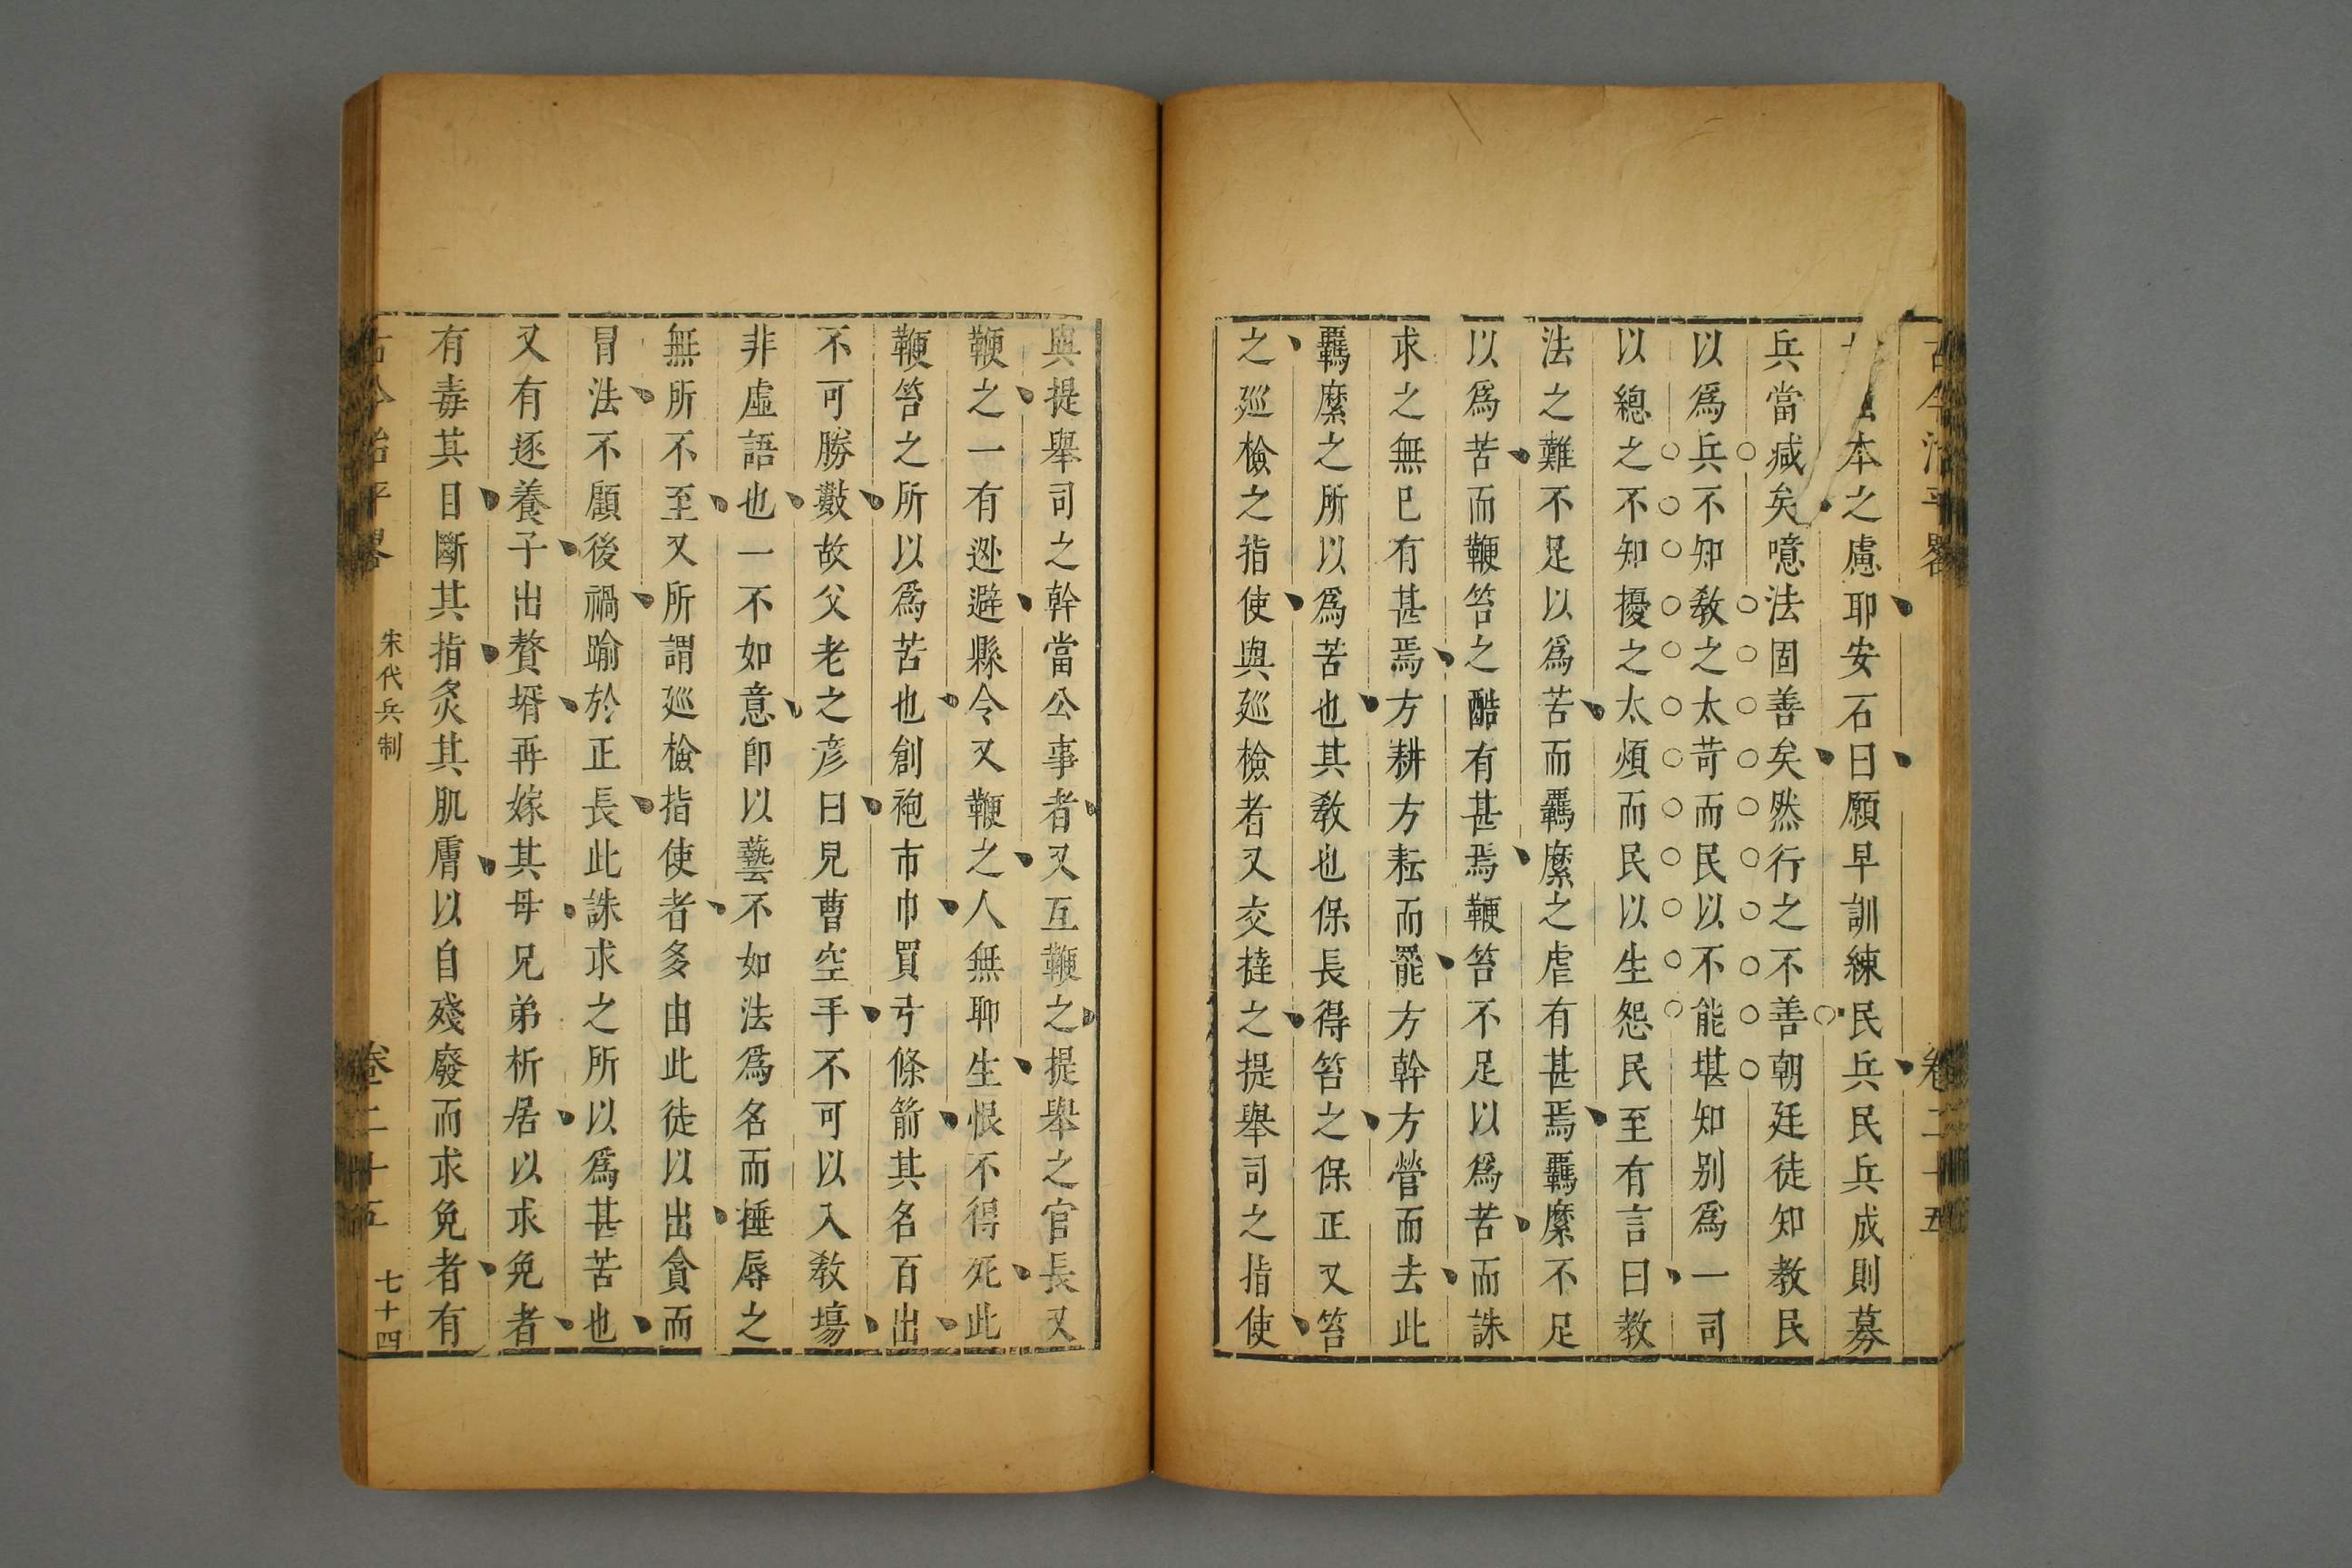 古今治平畧 卷二十五
本之慮耶安石曰願早訓練民兵民兵成則募
兵當减矣噫法固善矣然行之不善朝廷徒知教民
以爲兵不知教之太苛而民以不能堪知別爲一司
以總之不知擾之太煩而民以生怨民至有言曰教
法之難不足以爲苦而羈縻之虐有甚焉羈縻不足
以爲苦而鞭笞之酷有甚焉鞭笞不足以爲苦而誅
求之無已有甚焉方耕方耘而罷方幹方營而去此
羈縻之所以爲苦也其教也保長得笞之保正又笞
之廵檢之指使與廵檢者又交撻之提舉司之指使
與提舉司之幹當公事者又互鞭之提舉之官長又
鞭之一有逃避縣令又鞭之人無聊生恨不得死此
鞭笞之所以爲苦也創袍市巾買弓條箭其名百出
不可勝數故父老之彦曰見曹空手不可以入教塲
非虛語也一不如意卽以藝不如法爲名而捶辱之
無所不至又所謂廵檢指使者多由此徒以出貪而
冒法不顧後禍踰於正長此誅求之所以爲甚苦也
又有逐養子出贅壻再嫁其母兄弟析居以求免者
有毒其目斷其指炙其肌膚以自殘廢而求免者有
古今治平畧 宋代兵制 卷二十五 七十四